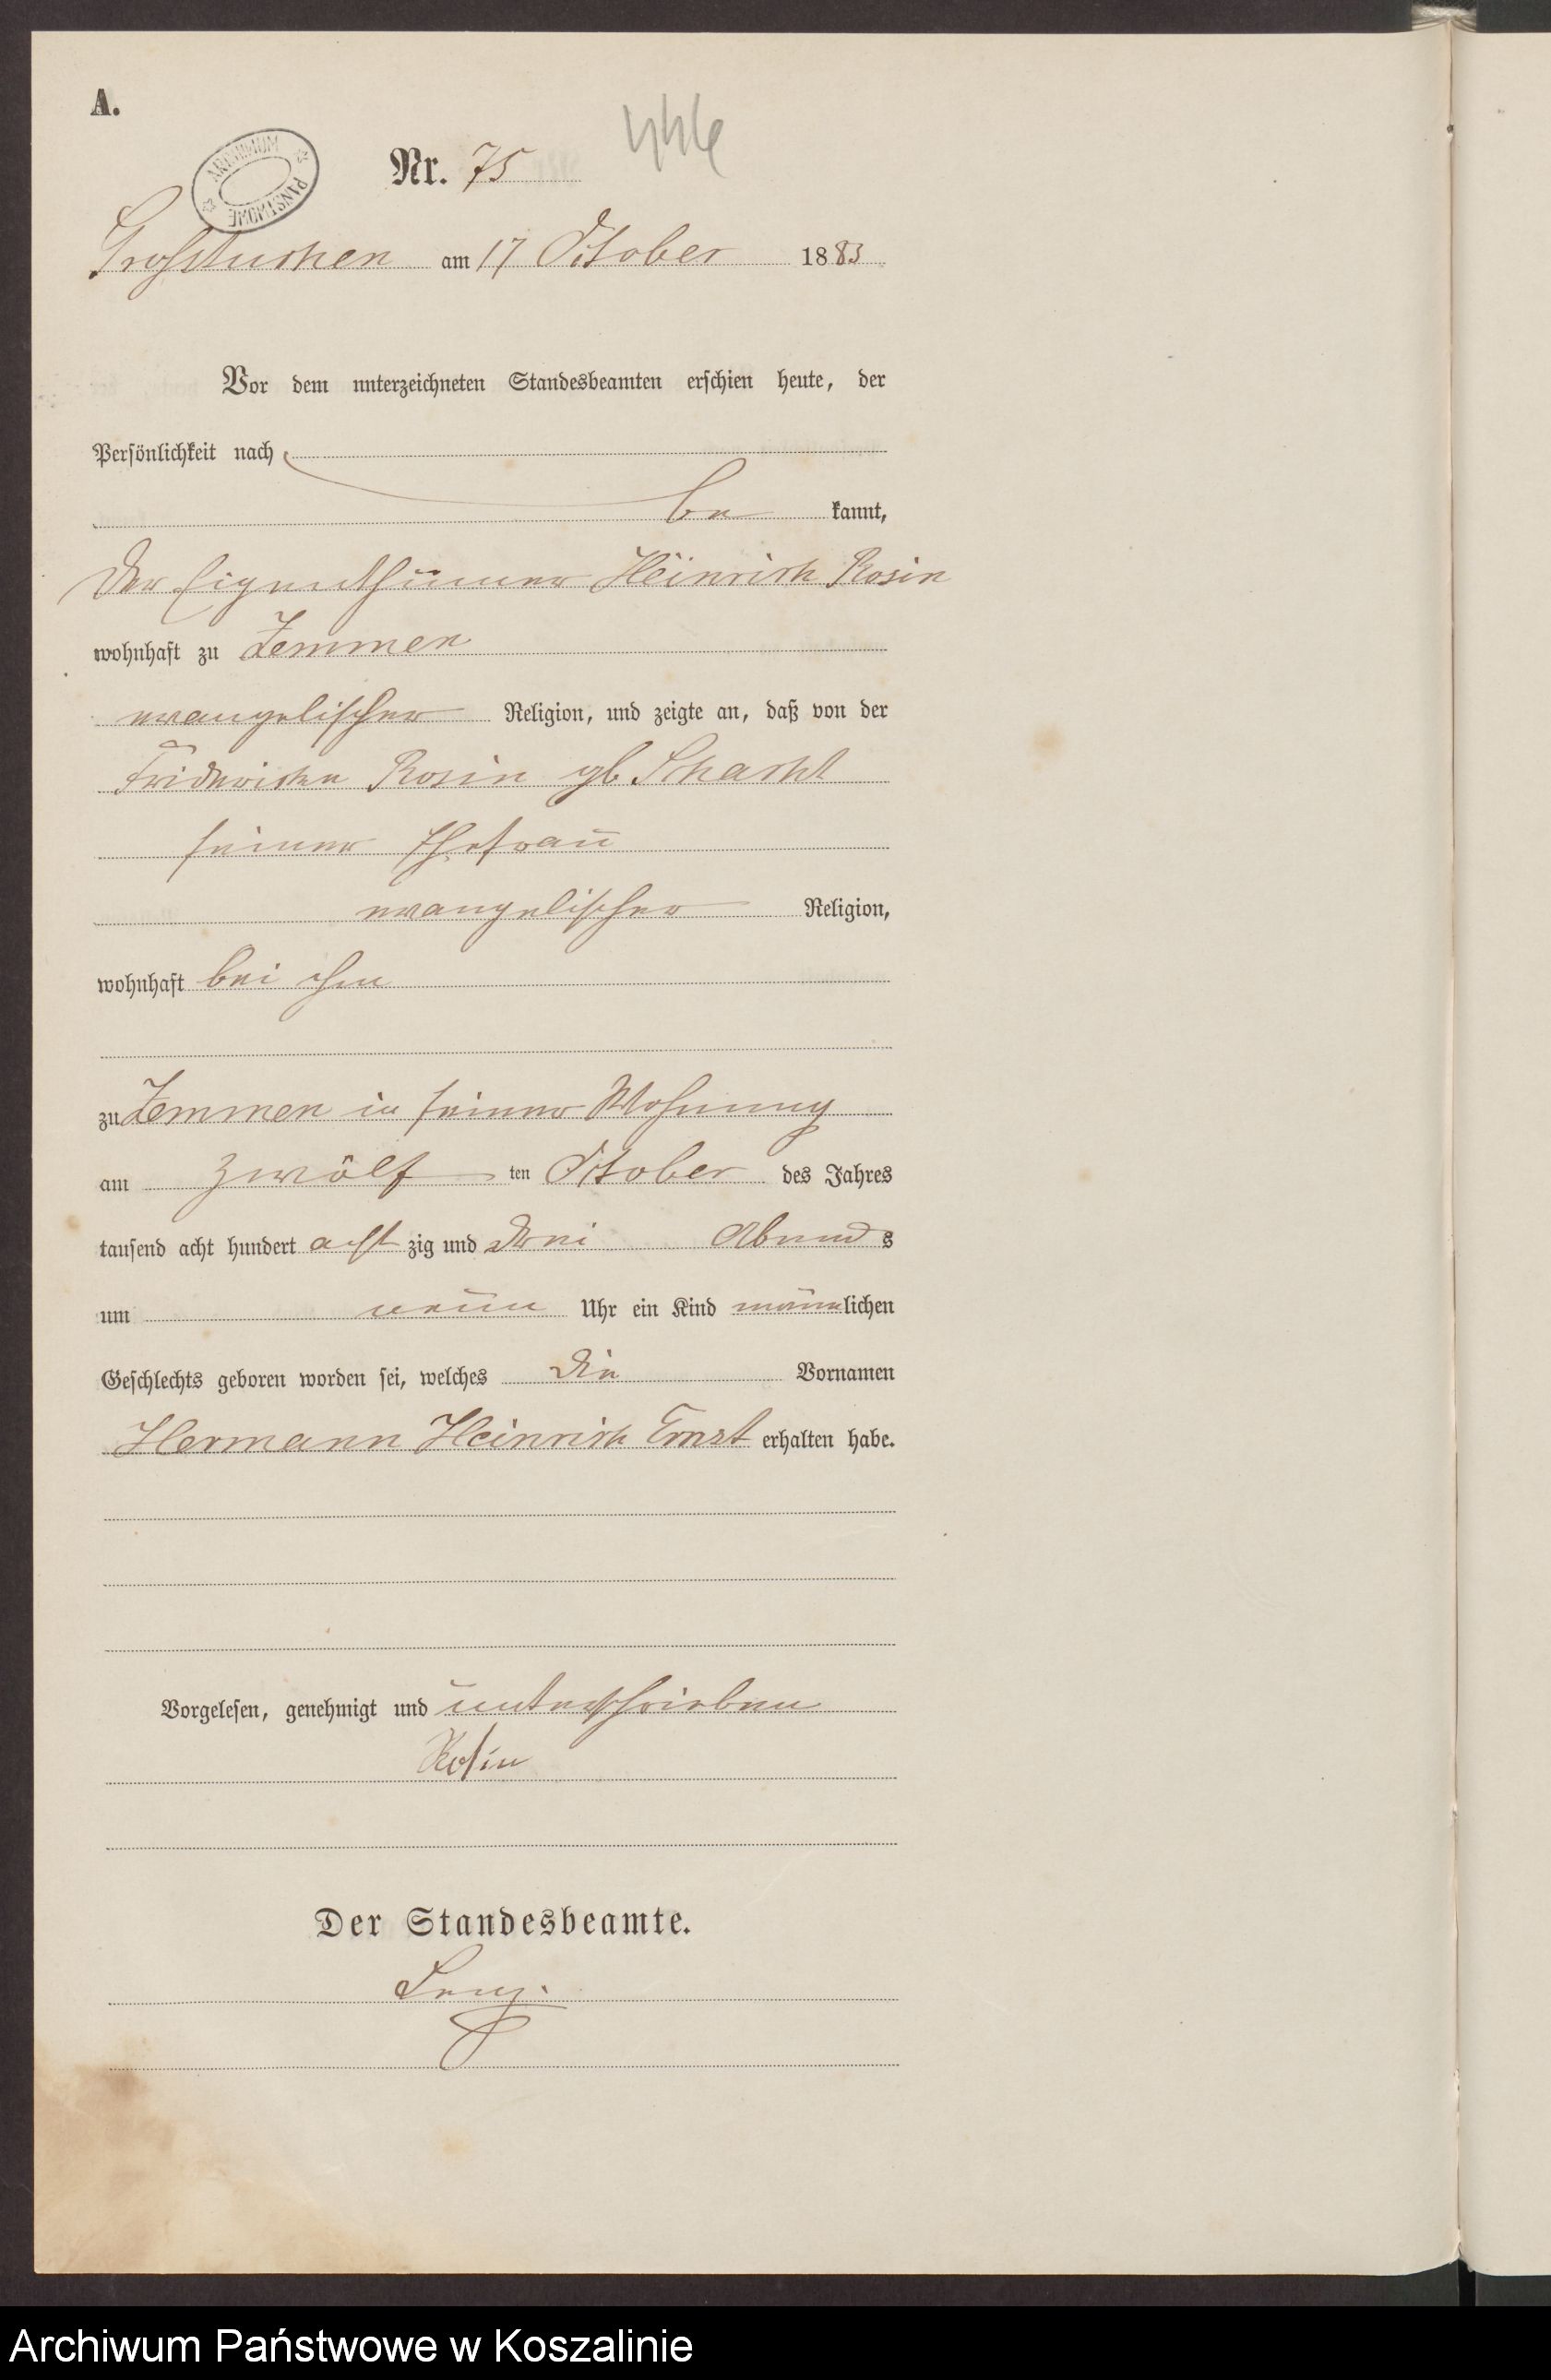 A.
ARCHIWUM PAŃSTWOWE
Nr. 75
446
Großtuchen am 17 October 1883
Vor dem unterzeichneten Standesbeamten erschien heute, der
Persönlichkeit nach
be kannt,
der Eigenthümer Heinrich Rosin
wohnhaft zu Zemmen
evangelischer Religion, und zeigte an, daß von der
Friderike Rosin gb
seiner Ehefrau
evangelischer Religion,
wohnhaft bei ihm
zu Zemmen in seiner Wohnung
am zwölf ten October des Jahres
tausend acht hundert acht zig und drei Abend s
um neun Uhr ein Kind männlichen
Geschlechts geboren worden sei, welches die Vornamen
Hermann Heinrich Ernst erhalten habe.
Vorgelesen, genehmigt und unterschrieben
Rosin
Der Standesbeamte.
Archiwum Państwowe w Koszalinie